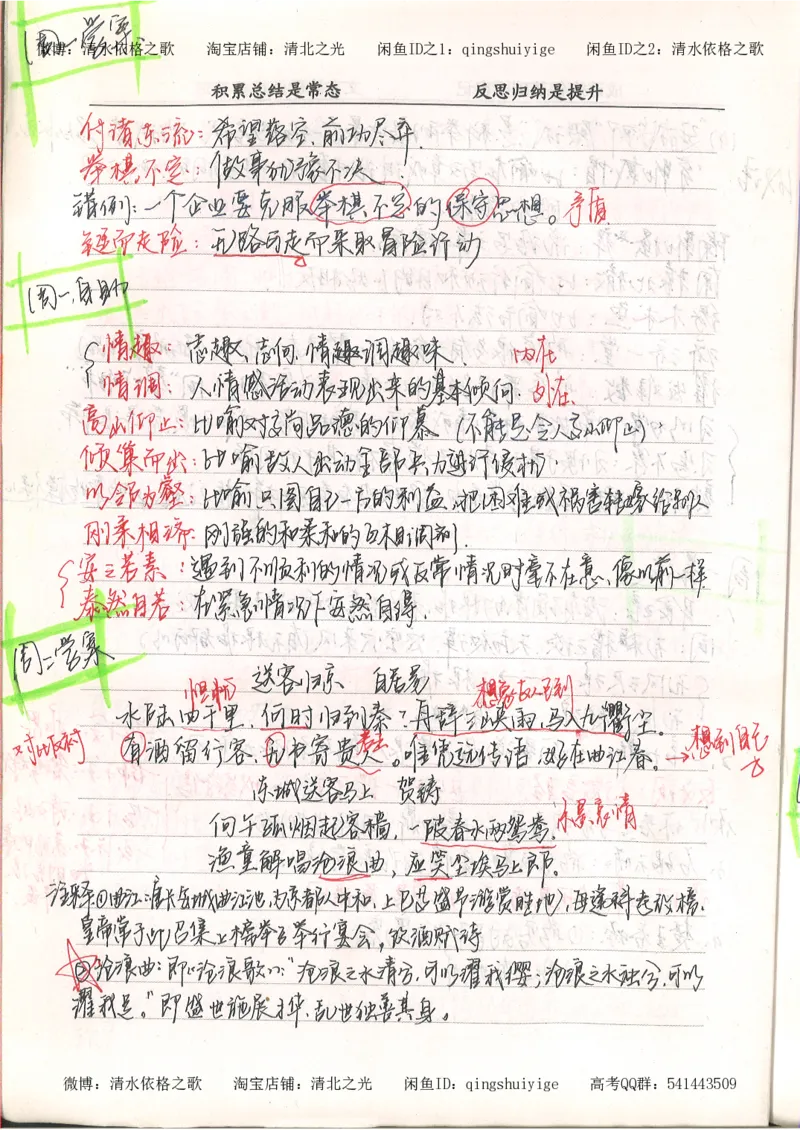 周一学案
微博：清水依格之歌 淘宝店铺：清北之光 闲鱼ID之1：qingshuiyige 闲鱼ID之2：清水依格之歌
积累总结是常态 反思归纳是提升
付诸东流：希望落空，前功尽弃．
举棋不定：做事犹豫不决．
错例：一个企业要克服举棋不定的保守思想。矛盾
铤而走险：无路可走而采取冒险行动
周一，自助
情趣：志趣、志向，情趣调趣味． 内在
情调：人情感活动表现出来的基本倾向．内在．
高山仰止：比喻对高尚品德的仰慕（不能是令人高山仰止）．
倾巢而出：比喻敌人出动全部兵力进行侵扰．
以邻为壑：比喻只图自己一方的利益，把困难或祸害转嫁给别人
刚柔相济：刚强的和柔和的互相调剂．
安之若素：遇到不顺利的情况或反常情况时毫不在意，像以前一样
泰然自若：在紧急情况下安然自得．
周二学案
送客归京 白居易
水陆四千里，何时归到秦？舟辞三峡雨，马入九衢尘。
有酒留行客，无书寄贵人。唯凭远传语，好在曲江春。→想到自己
对比反衬
东城送客马上 贺铸
何年孤烟起客樯，一陂春水两鸳鸯．乐景衷情
渔童解唱沧浪曲，应笑尘埃马上郎。
注释①曲江：唐长安城曲江池，为京都人中和，上巳盛节游赏胜地，每逢科考放榜．
皇帝常于此召集上榜举子举行宴会，饮酒赋诗
②沧浪曲：即《沧浪歌》："沧浪之水清兮，可以濯我缨；沧浪之水浊兮，可以
濯我足。"即盛世施展才华，乱世独善其身。
微博：清水依格之歌 淘宝店铺：清北之光 闲鱼ID：qingshuiyige 高考QQ群：541443509